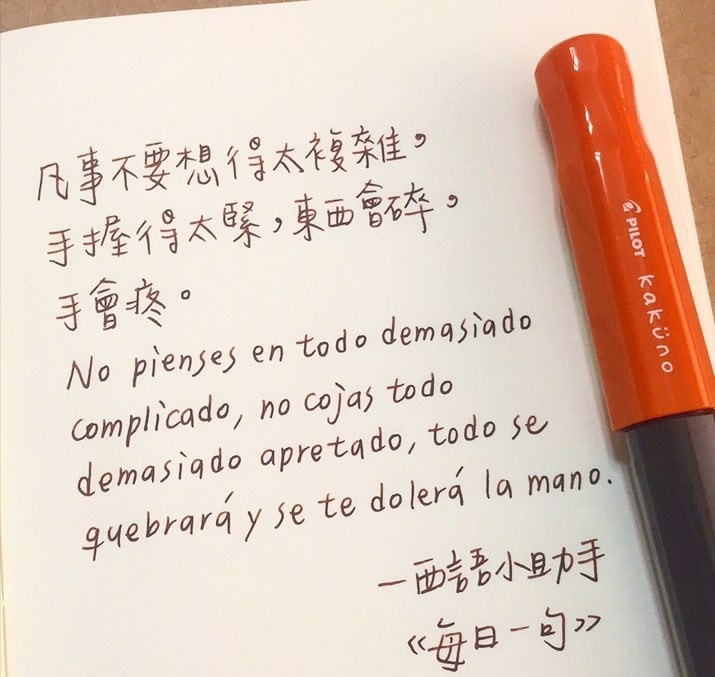 凡事不要想得太複雜，
手握得太緊，東西會碎。
手會疼。
No pienses en todo demasiado
complicado, no cojas todo
demasiado apretado, todo se
quebrará y se te dolerá la mano.
一西語小助手
《每日一句》
PILOT kaküno